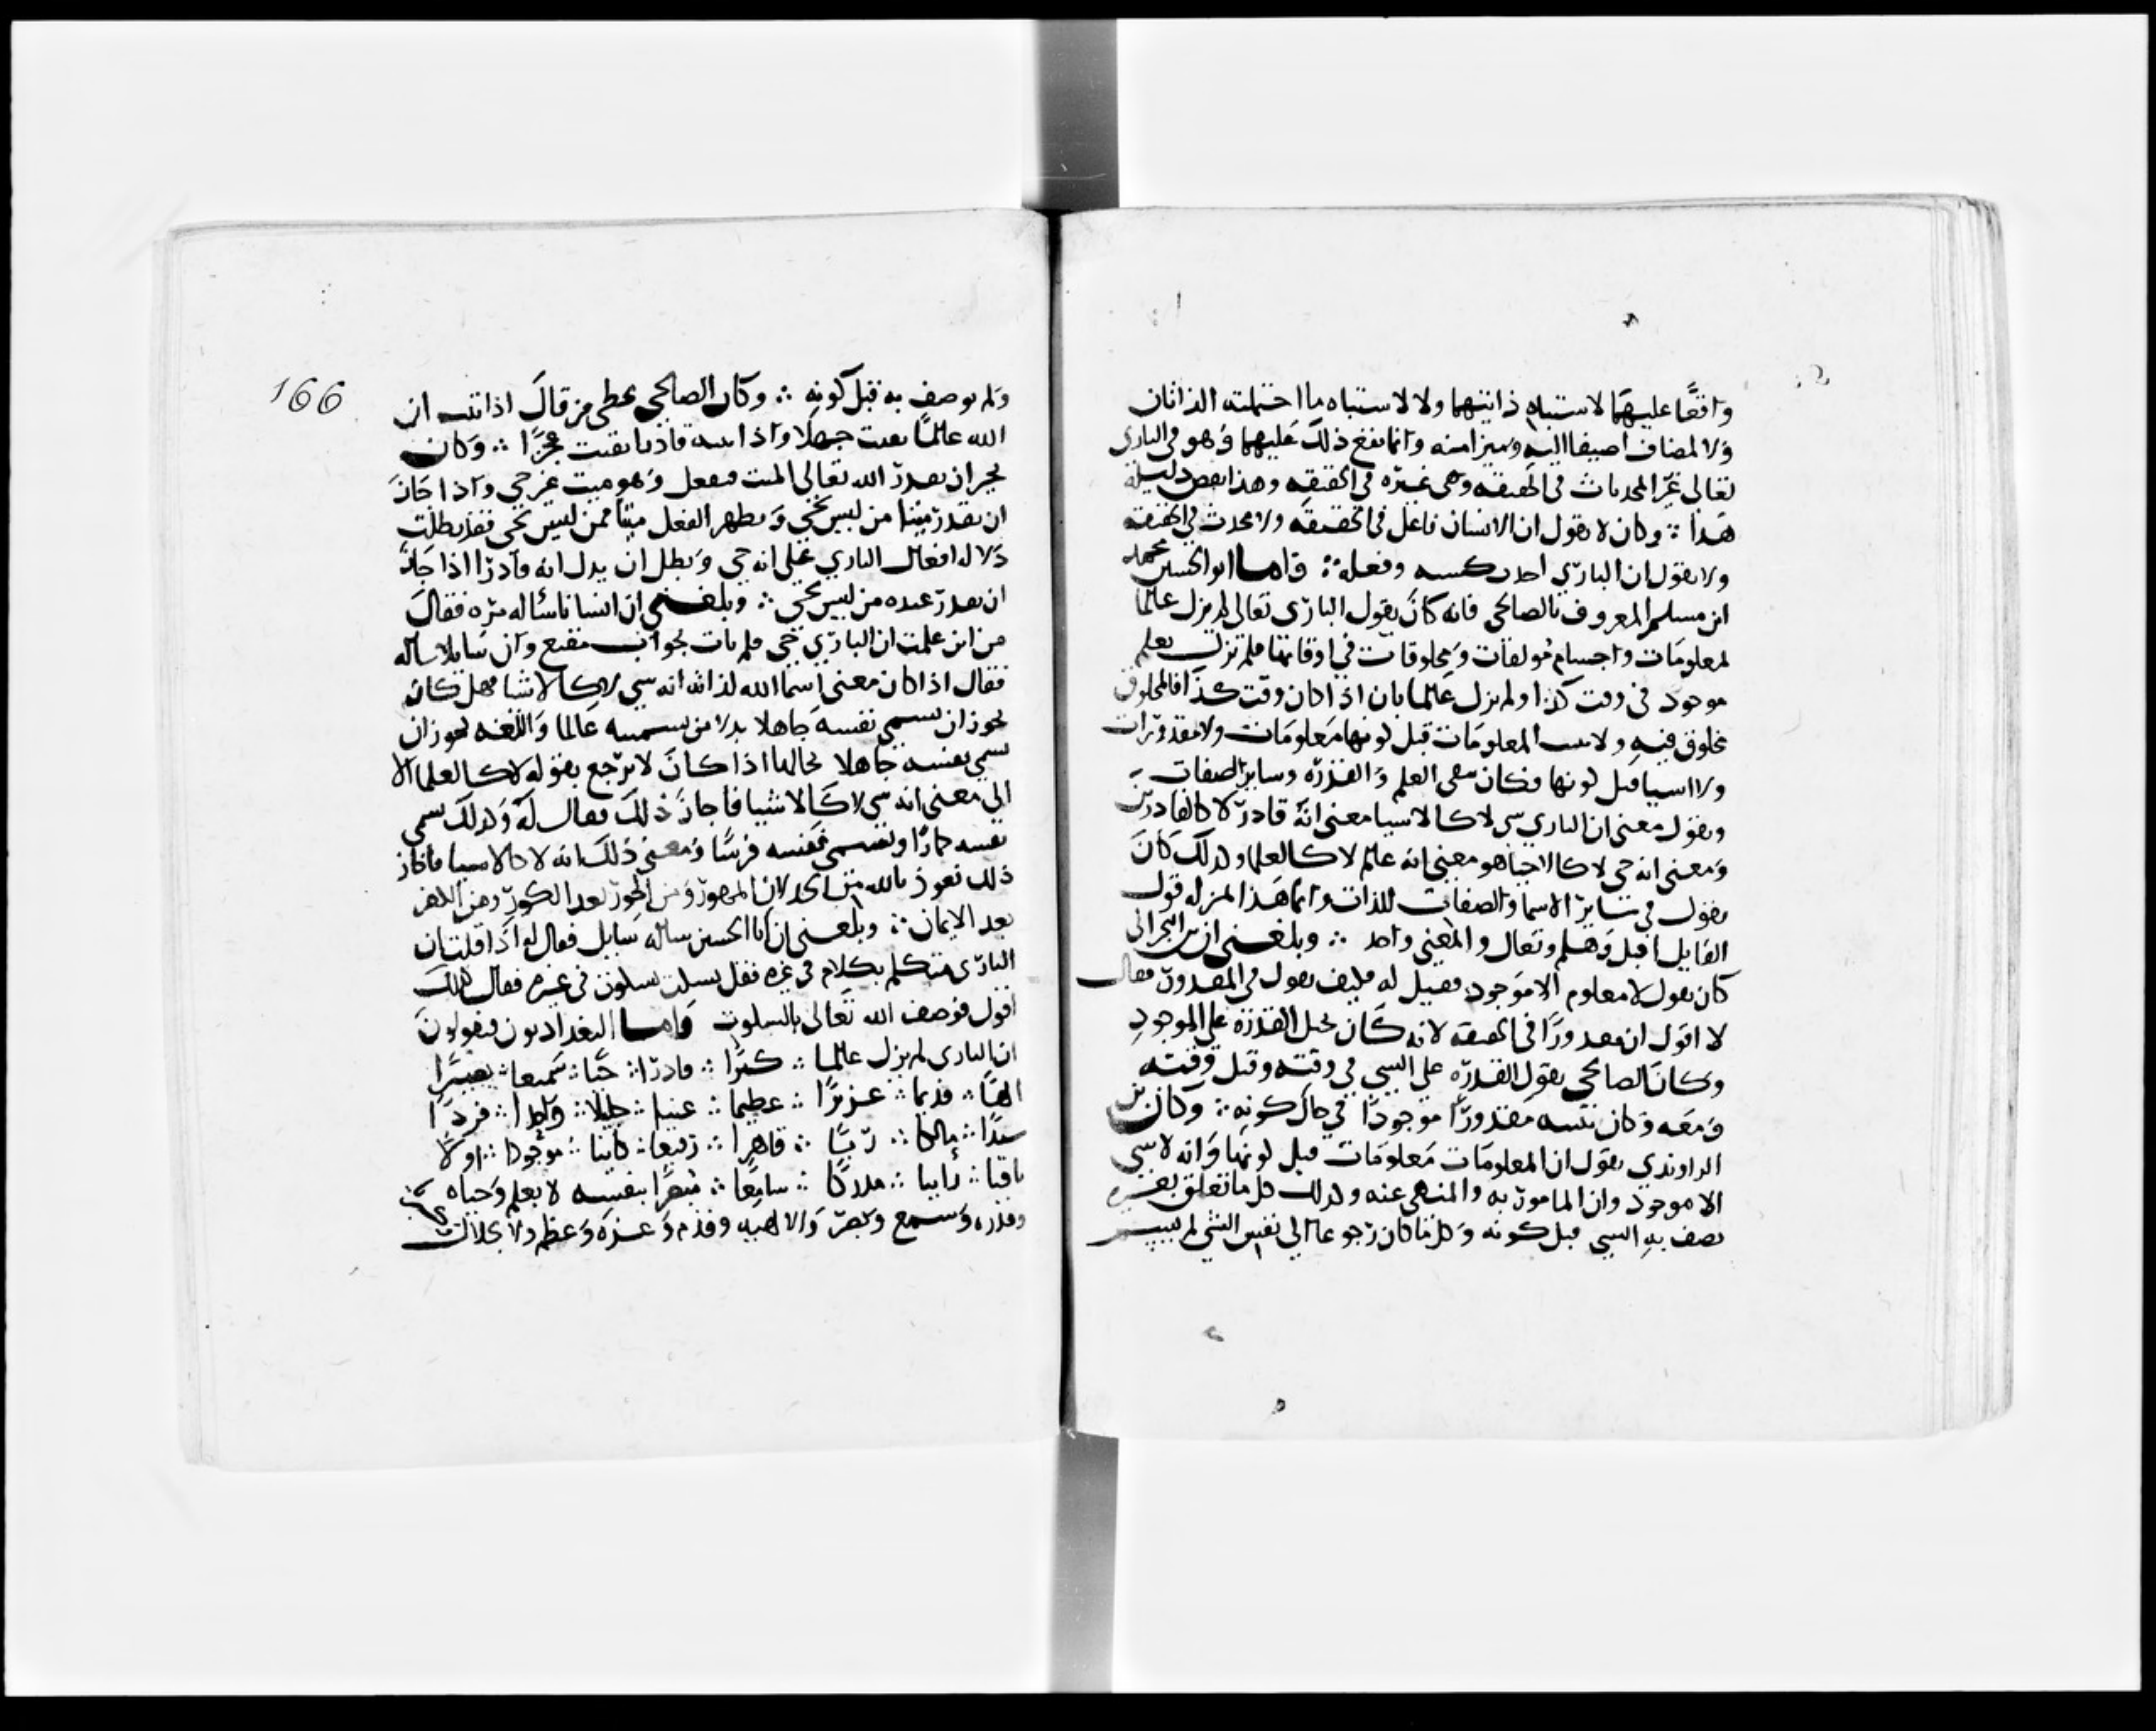 واقعًا عليهما لاشتباه ذاتيهما ولا لاشتباه ما احتملته الذاتان
ولا لمضاف اضيفا اليه وميزا منه وانما يقع ذلك عليهما وهو في الباري
تعالى غير المحدثات في الحقيقه وهي غيره في الحقيقه وهذا نقض دليله
هذا ∴ وكان لا يقول ان الانسان فاعل في الحقيقه ولا محدث في الحقيقه
ولا يقول ان الباري احدث كسبه وفعله ∴ واما ابو الحسين محمد
ابن مسلم المعروف بالصالحي فانه كان يقول الباري تعالى لم يزل عالمًا
لمعلومات واجسام مولفات ومخلوقات في اوقاتها فلم تزل يعلم
موجود في وقت كذا ولم يزل عالما بان اذا كان وقت كذا فالمخلوق
مخلوق فيه ولا يثبت المعلومات قبل كونها معلومات ولا مقدورات
ولا اشيا قبل كونها وكان معنى العلم والقدره وساير الصفات
ويقول معنى ان الباري شي لا كالاشيا معنى انه قادر لا كالقادرين
ومعنى انه حي لا كالاحيا هو معنى انه عالم لا كالعلما ولذلك كان
يقول في ساير الاسما والصفات للذات وانما هذا المنزله قول
القايل اقبل وهلم وتعال والمعنى واحد ∴ وبلغني ان بن النجراني
كان يقول لا معلوم الا موجود فقيل له فكيف يقول في المقدور فقال
لا اقول ان مقدورًا في الحقيقه لانه كان يحيل القدره على الموجود
وكان الصالحي يقول القدره على الشي في وقته وقبل وقته
ومعه وكان يثبته مقدورًا موجودًا في حال كونه ∴ وكان بن
الراوندي يقول ان المعلومات معلومات قبل كونها وانه لا شي
الا موجود وان المامور به والمنهي عنه وكذلك كل ما تعلق بغيره
يصف به الشي قبل كونه وكل ما كان رجوعا الى نفس الشي لم يسم
166
ولم يوصف به قبل كونه ∴ وكان الصالحي يخطي من قال اذا اثبت ان
الله عالمًا نفيت جهلا واذا اثبته قادرا نفيت عجزًا ∴ وكان
يجيز ان يقدر الله تعالى الميت فيفعل وهو ميت غير حي واذا جاز
ان يقدر ميتا من ليس بحي ويظهر الفعل ميتا ممن ليس بحي فقد بطلت
دلاله افعال الباري على انه حي وبطل ان يدل انه قادرا اذا جاز
ان يقدر عنده من ليس بحي ∴ وبلغني ان انسانا سأله مره فقال
من اين علمت ان الباري حي فلم يات بجواب مقنع وان سايلا ساله
فقال اذا كان معنى اسما الله لذاته انه شي لا كالاشيا فهل كان
يجوز ان يسمي نفسه جاهلا بدلا من تسميته عالما واللغه يجوز ان
يسمي نفسه جاهلا بحالها اذا كان لا يرجع بقوله لا كالعلما الا
الى معنى انه شي لا كالاشيا فاجاز ذلك فقال له وكذلك يسمي
نفسه حمارًا ويسمي نفسه فرسًا ومعنى ذلك انه لا كالاشيا فاجاز
ذلك نعوذ بالله من المهور ومن الحور بعد الكور ومن الكفر
بعد الايمان ∴ وبلغني ان ابا الحسين ساله سايل فقال له اذا قلت ان
الباري متكلم بكلام في غيره فقل يسكت بسكوت في غيره فقال كذلك
اقول فوصف الله تعالى بالسكوت واما البغداديون فيقولون
ان الباري لم يزل عالما ∴ كبيرًا ∴ قادرًا ∴ حيًا ∴ سميعا ∴ بصيرًا
الهًا ∴ قديما ∴ عزيزًا ∴ عظيما ∴ غنيا ∴ جليلا ∴ واحدا ∴ فردًا
سيدًا ∴ مالكا ∴ ربًا ∴ قاهرا ∴ رفيعا ∴ كاينا ∴ موجودا ∴ اولًا
باقيا ∴ راييا ∴ مدركا ∴ سامعًا ∴ مبصرًا بنفسه لا بعلم وحياه
وقدره وسمع وبصر والاهيه وقدم وعزه وعظم ولا بجلال